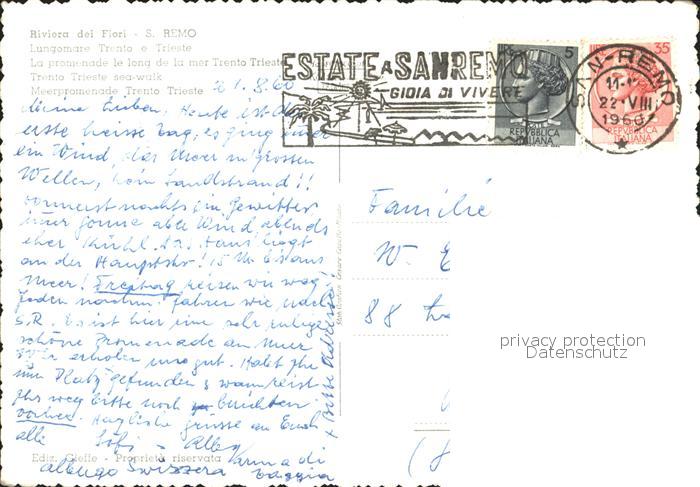 Riviera dei Fiori - S. REMO
Lungomare Trento e Trieste
La promenade le long de la mer Trento Trieste
Trento Trieste sea-walk
Meerpromenade Trento Trieste
21.8.60
Meine Lieben, Heute ist der
erste heisse Tag, es ging immer
ein Wind, das Meer in grossen
Wellen, kein Sandstrand!!
vormerst nachts ein Gewitter
immer Sonne aber Wind abends
eher kühl. Das Haus liegt
an der Hauptstr! 15 M. bis ans
Meer! Freitag reisen wir weg
jeden nachm. fahren wir nach
S.R. Es ist hier eine sehr ruhige
schöne Promenade am Meer
wir erholen uns gut. Habt Ihr
nun Platz gefunden & wann reist
Ihr weg bitte noch berichten
vorher. Herzliche Grüsse an Euch
alle
+ Bitte Adresse!
albergo Svizzera Varma di
Taggia
Ediz. Gieffe - Proprietà riservata
ESTATE A SANREMO
GIOIA DI VIVERE
LIRE 5
REPVBBLICA
ITALIANA
LIRE 35
REPVBBLICA
ITALIANA
SAN-REMO
22.VIII
1960
Familie
W. E
88
privacy protection
Datenschutz